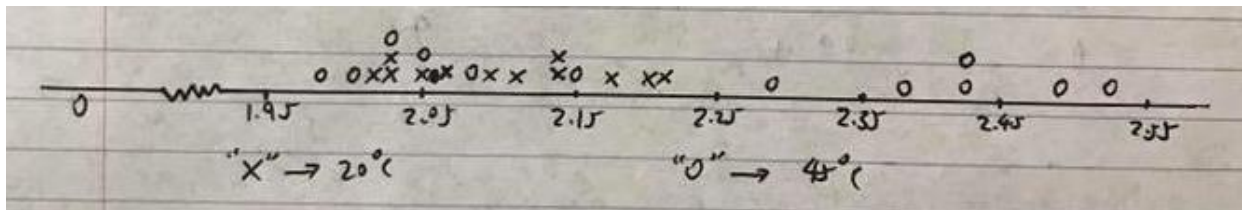 0 1.95 2.05 2.15 2.25 2.35 2.45 2.55
"X" → 20°C "O" → 45°C